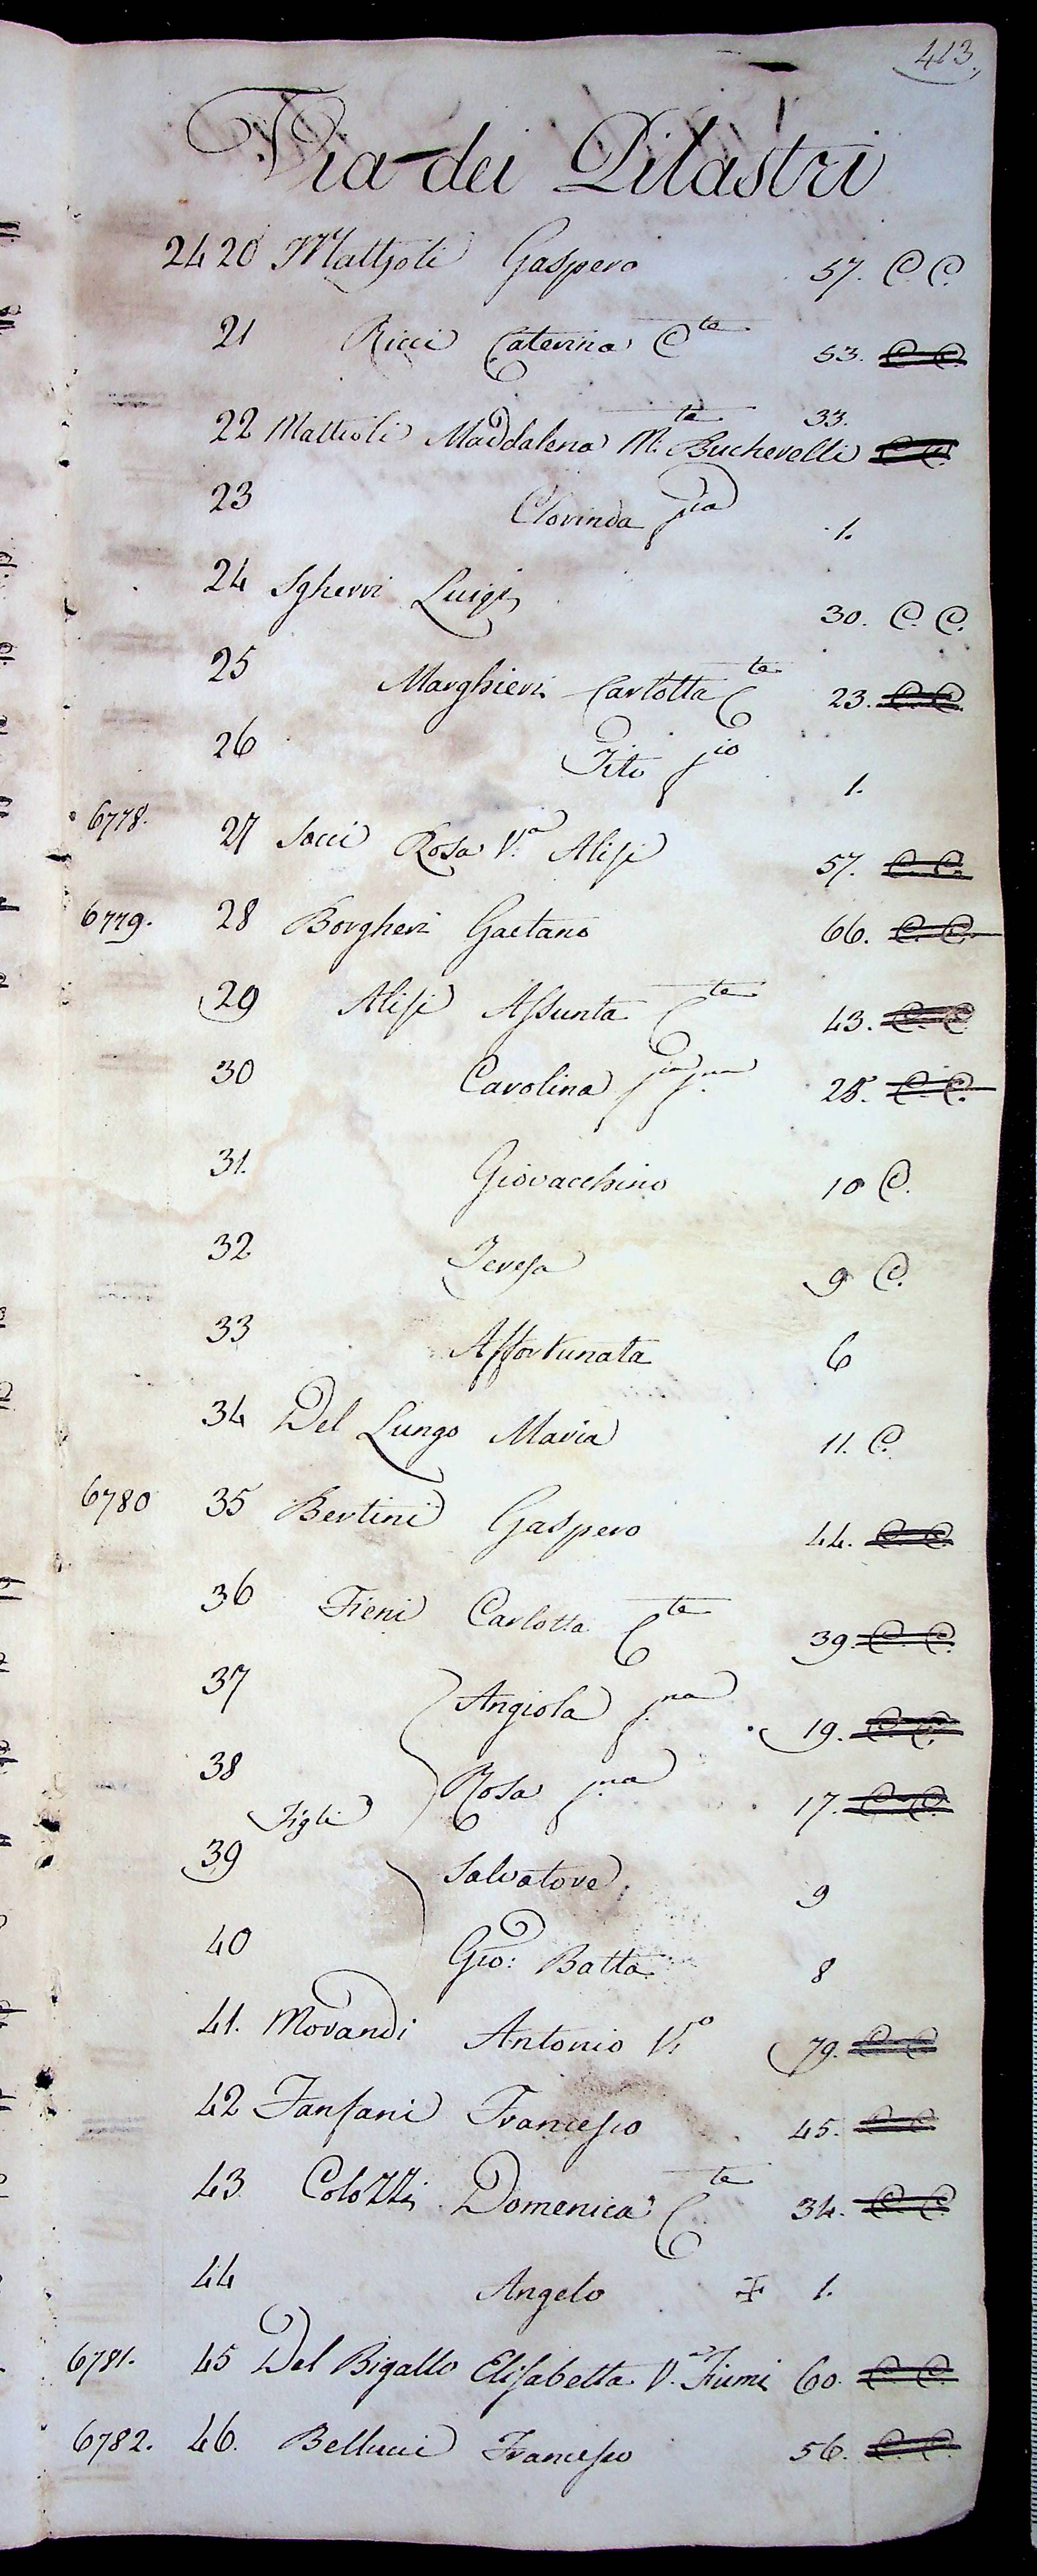 413.
Via dei Pilastri
2420 Mattioli Gaspero 57. C. C.
21 Ricci Caterina C.ta 53. C. C.
22 Mattioli Maddalena M.ta Bucherelli 33. C. C.
23 Clorinda f.ia 1.
24 Sgherri Luigi 30. C. C.
25 Marghieri Carlotta C.ta 23. C. C.
26 Tito f.io 1.
6778. 27 Socci Rosa V.a Alisi 57. C. C.
6779. 28 Borgheri Gaetano 66. C. C.
29 Alisi Assunta C.ta 43. C. C.
30 Carolina f.ia p.ma 28. C. C.
31. Giovacchino 10 C.
32 Teresa 9 C.
33 Affortunata 6
34 Del Lungo Maria 11. C.
6780 35 Bertini Gaspero 44. C. C.
36 Fieni Carlotta C.ta 39. C. C.
37 Angiola f.na 19. C. C.
38 Rosa f.na 17. C. C.
Figli
39 Salvatore 9
40 Gio: Batta 8
41. Morandi Antonio V.o 79. C. C.
42 Fanfani Francesco 45. C. C.
43 Colozzi Domenica C.ta 34. C. C.
44 Angelo ✠ 1.
6781. 45 Del Bigallo Elisabetta V.a Fiumi 60. C. C.
6782. 46. Bellucci Francesco 56. C. C.